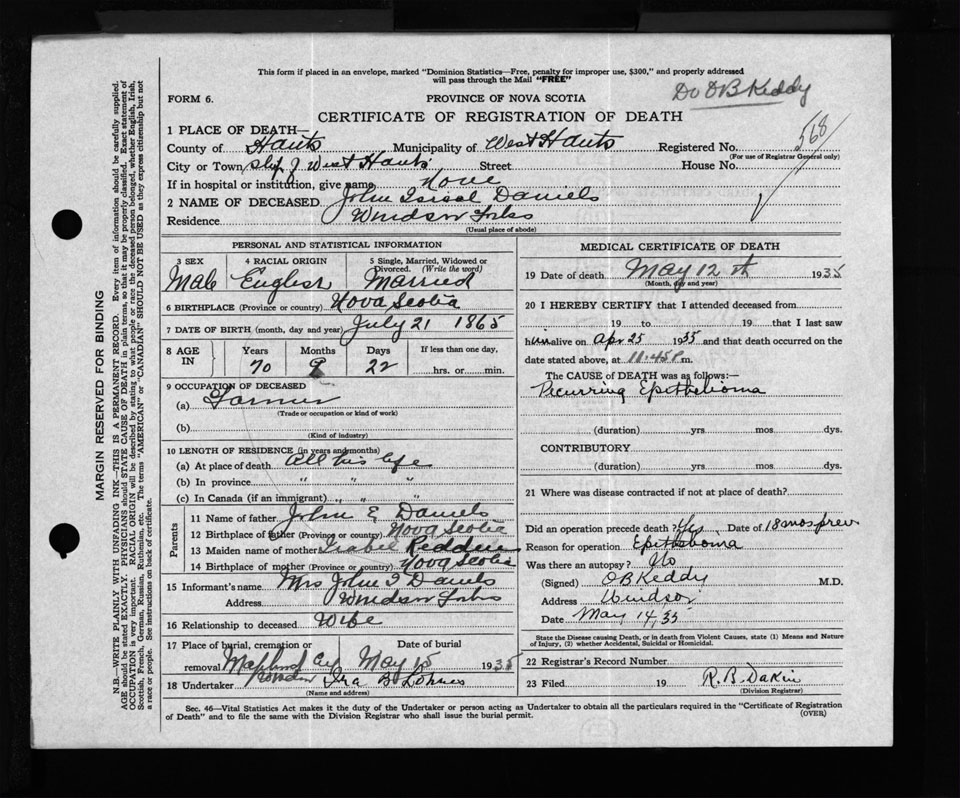 This form if placed in an envelope, marked "Dominion Statistics—Free, penalty for improper use, $300," and properly addressed
will pass through the Mail "FREE"
Dr O B Keddy
FORM 6.
PROVINCE OF NOVA SCOTIA
CERTIFICATE OF REGISTRATION OF DEATH
568
1 PLACE OF DEATH—
County of Hants Municipality of West Hants Registered No.
(For use of Registrar General only)
City or Town West Hants Street House No.
If in hospital or institution, give name None
2 NAME OF DECEASED John Daniels
Residence Windsor Forks
(Usual place of abode)
PERSONAL AND STATISTICAL INFORMATION
3 SEX 4 RACIAL ORIGIN 5 Single, Married, Widowed or Divorced. (Write the word)
Male English Married
6 BIRTHPLACE (Province or country) Nova Scotia
7 DATE OF BIRTH (month, day and year) July 21 1865
8 AGE IN Years Months Days If less than one day,
70 9 22 hrs. or min.
9 OCCUPATION OF DECEASED
(a) Farmer
(Trade or occupation or kind of work)
(b)
(Kind of industry)
10 LENGTH OF RESIDENCE (in years and months)
(a) At place of death All his life
(b) In province " " "
(c) In Canada (if an immigrant) " " "
Parents
11 Name of father John E Daniels
12 Birthplace of father (Province or country) Nova Scotia
13 Maiden name of mother Isabel Redden
14 Birthplace of mother (Province or country) Nova Scotia
15 Informant's name Mrs John I Daniels
Address Windsor Forks
16 Relationship to deceased Wife
17 Place of burial, cremation or removal Date of burial
Windsor May 15 1935
18 Undertaker Ira B Lohnes
(Name and address)
MEDICAL CERTIFICATE OF DEATH
19 Date of death May 12th 1935
(Month, day and year)
20 I HEREBY CERTIFY that I attended deceased from
19 to 19 that I last saw
him alive on Apr 25 1935 and that death occurred on the
date stated above, at 11.45 P. m.
The CAUSE of DEATH was as follows:—
Recurring Epithelioma
(duration) yrs mos dys.
CONTRIBUTORY
(duration) yrs. mos. dys.
21 Where was disease contracted if not at place of death?
Did an operation precede death? Yes Date of 18 mos prev
Reason for operation Epithelioma
Was there an autopsy? No
(Signed) O B Keddy M.D.
Address Windsor
Date May 14, 35
State the Disease causing Death, or in death from Violent Causes, state (1) Means and Nature
of Injury, (2) whether Accidental, Suicidal or Homicidal.
22 Registrar's Record Number
23 Filed 19 R. B. Dakin
(Division Registrar)
Sec. 46—Vital Statistics Act makes it the duty of the Undertaker or person acting as Undertaker to obtain all the particulars required in the "Certificate of Registration
of Death" and to file the same with the Division Registrar who shall issue the burial permit. (OVER)
MARGIN RESERVED FOR BINDING
N.B—WRITE PLAINLY WITH UNFADING INK—THIS IS A PERMANENT RECORD. Every item of information should be carefully supplied.
AGE should be stated EXACTLY. PHYSICIANS should STATE CAUSE OF DEATH in plain terms, so that it may be properly classified. Exact statement of
OCCUPATION is very important. RACIAL ORIGIN will be described by stating to what people or race the deceased person belonged, whether English, Irish,
Scottish, French, German, Russian, Ruthenian, etc. The terms "AMERICAN" or "CANADIAN" SHOULD NOT BE USED as they express citizenship but not
a race or people. See instructions on back of certificate.